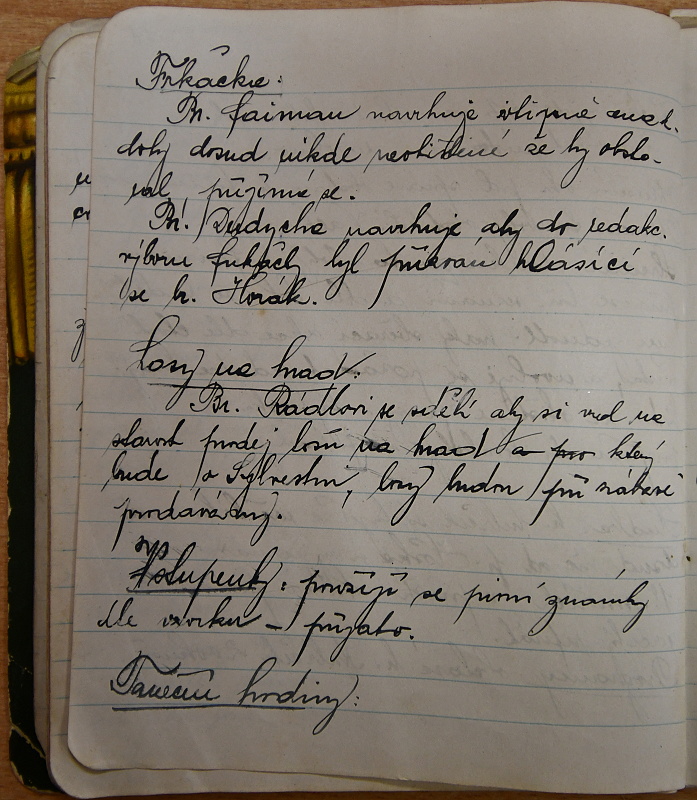 Frkačku:
Br. Faiman navrhuje vtipné anek-
doty dosud nikde neotištěné se by obsto-
val, přijímá se.
Br. Dudycha navrhuje aby do redakc.
výboru byl přibrán hlásící
se br. Horák.
Losy na hrad:
Br. Rádlovi se sdělí aby si vzal na
starost prodej losů na hrad a pro který
bude o Sylvestru, losy budou při zábavě
prodávány.
Vstupenky: použijí se pivní známky
dle vzorku – přijato.
Taneční hodiny: